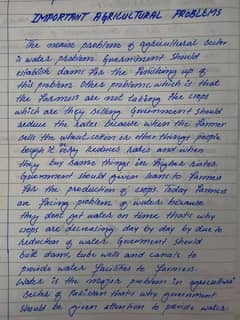 IMPORTANT AGRICULTURAL PROBLEMS
The major problem of agricultural sector
is water problem. Government should
establish dams for the finishing up of
this problem. Other problems, which is that
the farmers are not taking the crops
which are they selling. Government should
reduce the rates because when the farmer
sells the wheat, cotton or other things people
buys it very reduces rates and when
they buy same things in higher rates.
Government should given loans to farmers
for the production of crops. Today farmers
are facing problems of water because
they dont get water on time thats why
crops are decreasing day by day by due to
reduction of water. Government should
built dams, tube wells and canals to
provide water facilities to farmers.
Water is the major problem in agriculture
sector of Pakistan thats why government
should be given attention to provide water